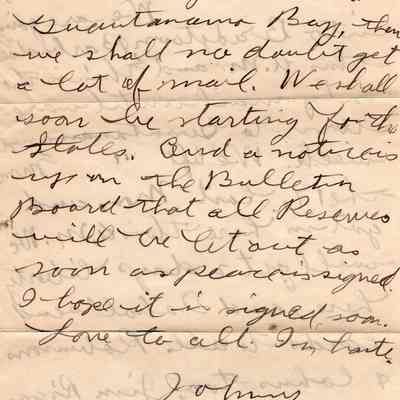 Guantanamo Bay, then
we shall no doubt get
a lot of mail. We shall
soon be starting for the
States. And a notice is
up on the Bulletin
Board that all Reserves
will be let out as
soon as peace is signed.
I hope it is signed soon.
Love to all. In haste.
Johnny